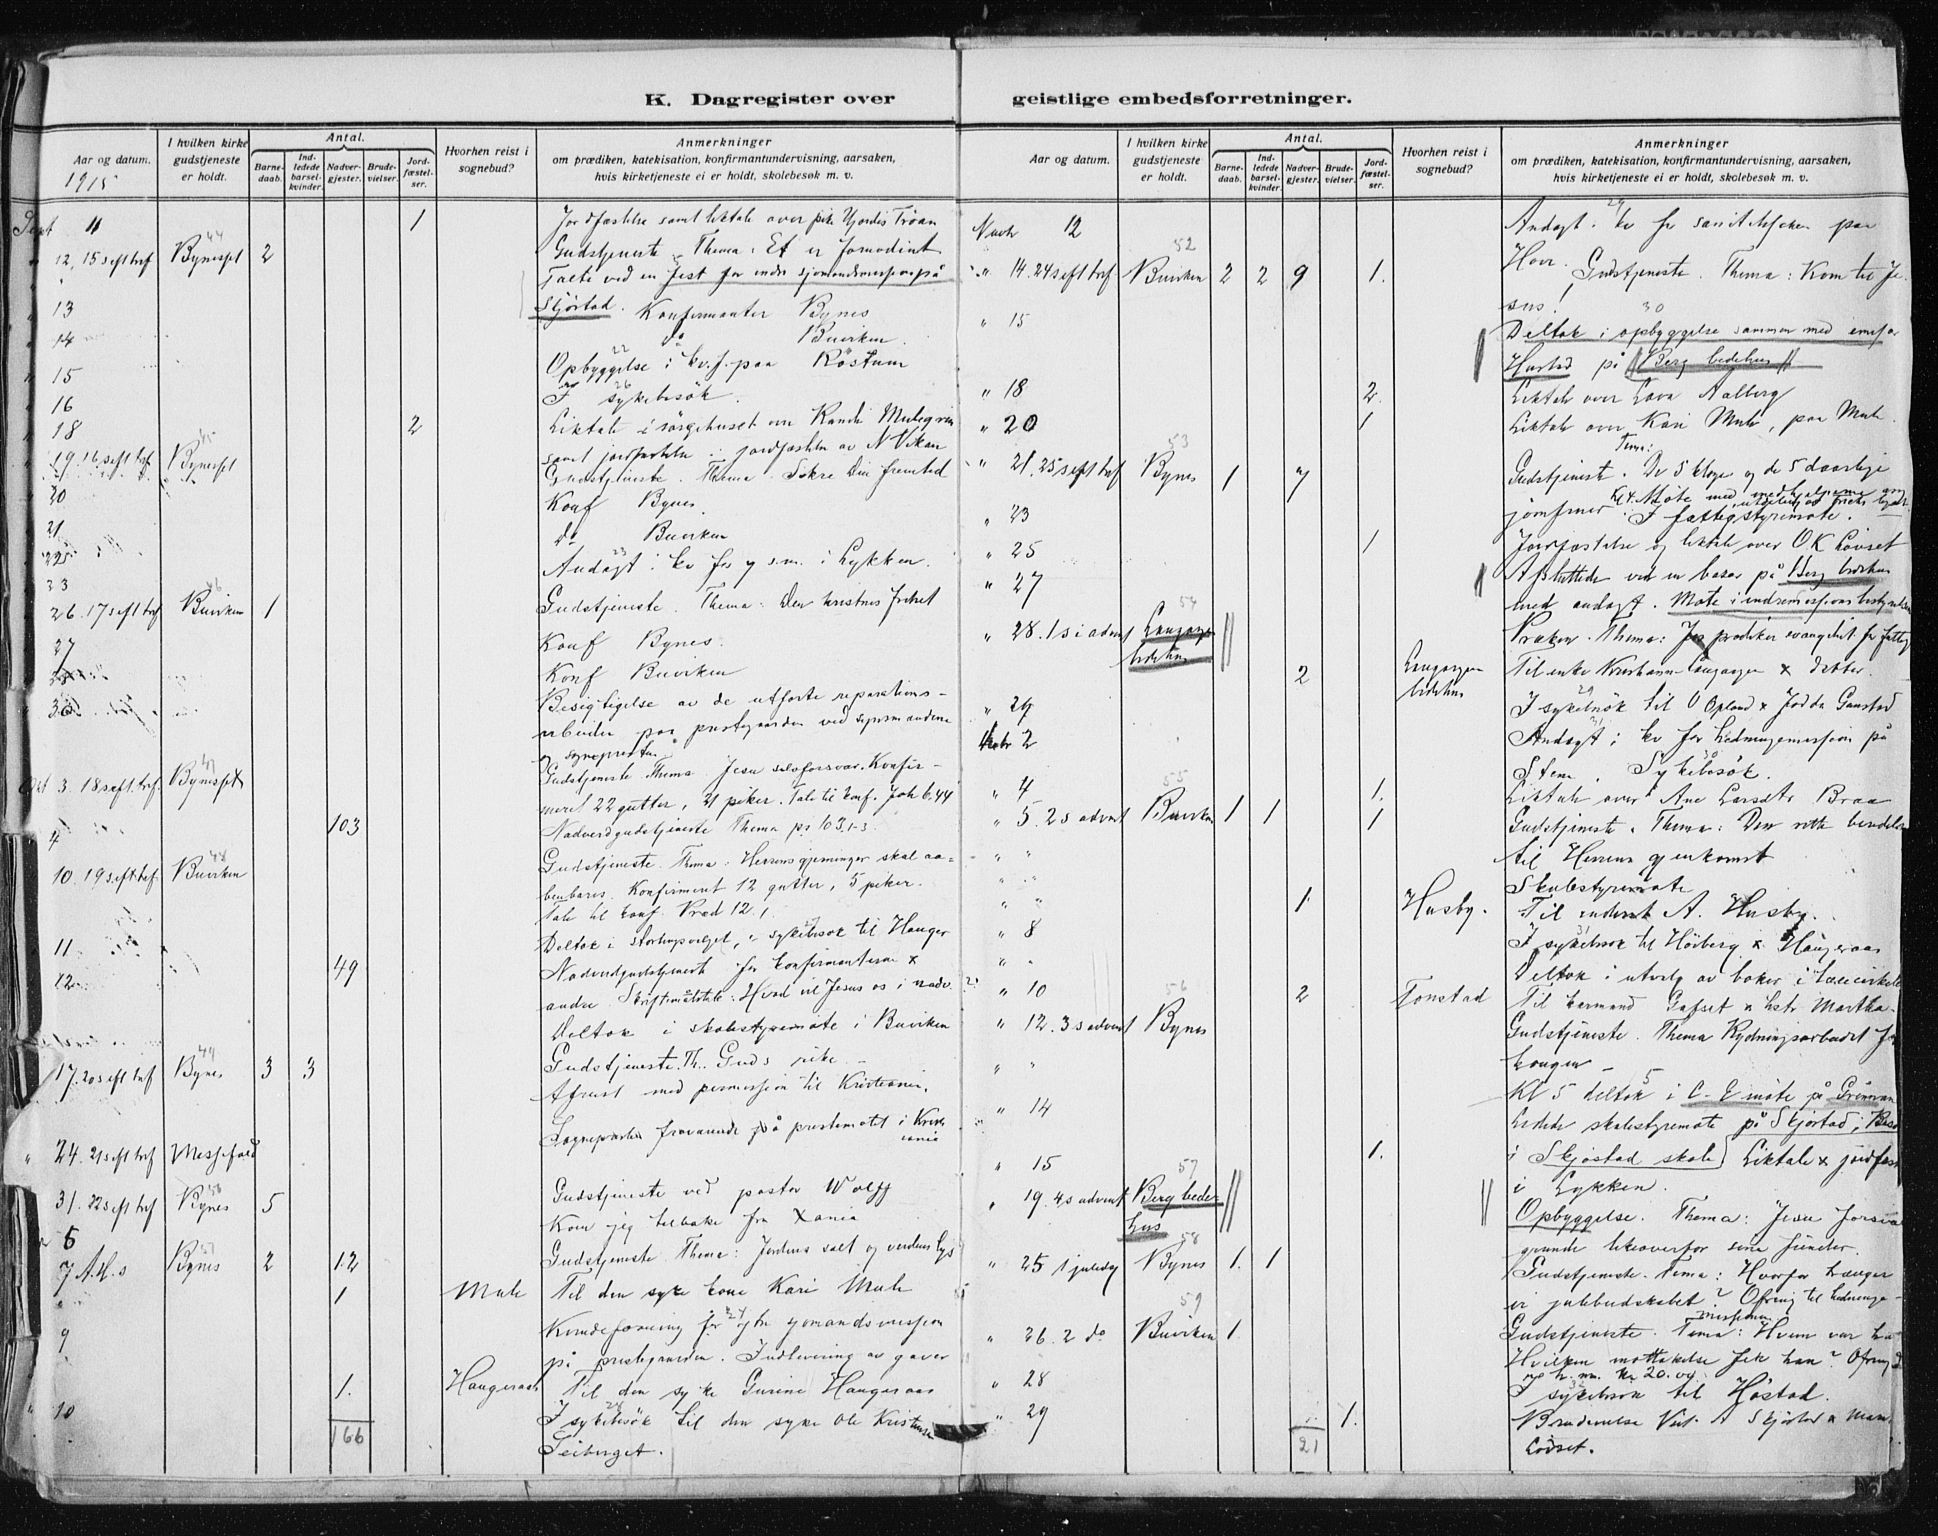 K. Dagregister over
Aar og datum.
1915
I hvilken kirke
gudstjeneste
er holdt.
Antal.
Barne-
daab.
Ind-
ledede
barsel-
kvinder.
Nadver-
gjester.
Brude-
vielser.
Jord-
fæstel-
ser.
Hvorhen reist i
sognebud?
Anmerkninger
om prædiken, katekisation, konfirmantundervisning, aarsaken,
hvis kirketjeneste ei er holdt, skolebesøk m. v.
Sept 11 1 Jordfæstelse samt liktale over pike Hjørdis Trøan
12, 15 s eft tref Bynes 44 2 Gudstjeneste. Thema: Et er fornødent
Talte ved en fest for indre sjømandsmission på
13 Skjøstad. Konfirmanter Bynes
14 do Buviken
15 Opbyggelse i kv.f. paa Rostum 22
16 I sykebesøk. 26
18 2 Liktale i sørgehuset over
samt jordfæstelse jordfæstelse av N Vikan
19. 16 s eft tref Bynes 45 Gudstjeneste. Thema. Sikre Din fremtid
20 Konf Bynes
21 do Buviken
22 Andagt i kv for y s.m. i Lykken. 23
23
26. 17 s eft tref Buviken 46 1 Gudstjeneste. Thema: Den kristnes frihet
27 Konf Bynes.
Konf Buviken
30 Besigtigelse av de utførte reparations-
arbeider paa prestegaarden ved synsmændene
og sognepresten
Okt 3. 18 s eft. tref. Bynes 47 Gudstjeneste Thema Jesu selvforsvar. Konfir-
meret 22 gutter, 21 piker. Tale til konf. Joh 6.44
4 103 Nadverdgudstjeneste Thema ps 103.1-3.
10. 19 s eft tref Buviken 48 Gudstjeneste. Thema: Herrens gjerninger skal aa-
benbares. Konfirmeret 12 gutter, 5 piker.
Tale til konf. Præd 12.1
11 Deltok i stortingsvalget, sykebesøk til Hauger 27
12 49 Nadverdgudstjeneste for konfirmanterne x
andre. Skriftmålstale: Hvad vil Jesus os i nadv.
Deltok i skolestyremøte i Buviken
17. 20 s eft tref Bynes 49 3 3 Gudstjeneste. Th. Guds rike
Afreist med permission til Kristiania.
Sognepresten fraværende på prestemøte i Kristi
ania
" 24. 21 s eft tref Messefald
31. 22 s eft tref Bynes 50 5 Gudstjeneste ved pastor Wolff
6 Kom jeg tilbake fra Xania
7 A.H.s Bynes 51 2 12 Gudstjeneste. Thema: Jordens salt og verdens lys
1 Mule Til den syke kone Kari Mule
9 Kvindeforening for sjømandsmission 24
på prestegaarden. Indlevering av gaver
1. Haugeraas Til den syke Gurine Haugeraas
10 I sykebesøk til den syke Ole Kristensen 28
166 Leiberget.
geistlige embedsforretninger.
Aar og datum.
I hvilken kirke
gudstjeneste
er holdt.
Antal.
Barne-
daab.
Ind-
ledede
barsel-
kvinder.
Nadver-
gjester.
Brude-
vielser.
Jord-
fæstel-
ser.
Hvorhen reist i
sognebud?
Anmerkninger
om prædiken, katekisation, konfirmantundervisning, aarsaken,
hvis kirketjeneste ei er holdt, skolebesøk m. v.
Novb 12 Andagt. kv for sanitetssaken paa 29
Hove.
" 14. 24 s eft tref Buviken 52 2 2 9 1. Gudstjeneste. Thema: Kom til Je-
sus!
" 15 Deltok i opbyggelse sammen med emiss 30
Hustad på Berg bedehus
" 18 2. Liktale over Lova Aalberg
" 20 1 Liktale over Kari Mule, paa Mule
" 21. 25 s eft tref Bynes 53 1 7 Gudstjeneste. Tema: De 5 kloge og de 5 daarlige
jomfruer. Kl 4. Møte med medhjelperne ang
utdeling av
" 23 I fattigstyremøte.
" 25 1 Jordfæstelse og liktale over O K Lovset
" 27 Afsluttede ved en basar på Berg bedehus
med andagt. Møte i indremissions bestyrelse
" 28. 1 s i advent Langørgen 54
bedehus
Præken. Thema: Jes prædiker evangeliet for fattig
2 Langørgen
bedehus
Til enke Langørgen x datter.
" 29 I sykebesøk til O Opland x Jødda Gaustad 29
Decbr 2 Andagt i kv for hedningemission på 31
Stene. Sykebesøk. 30
" 4 1. Liktale over Ane Larsdtr Braa
" 5. 2 s advent Buviken 55 1 1 1 Gudstjeneste. Thema: Den rette beredelse
til Herrens gjenkomst
" " Skolestyremøte
" " 1. Husby. Til A. Husby.
" 8 I sykebesøk til Høiberg x Haugeraas 31
" " Deltok i utvalg av bøker i Læsecirkel
" 10 2 Tonstad Til kaarmand Gafset x hstr Martha.
" 12. 3 s advent Bynes 56 Gudstjeneste. Thema Rydningsarbeidet for
kongen
" " Kl 5 deltok i C-E møte på Grønsan 5
" 14 Ledede skolestyremøte på Skjøstad,
i Skjøstad skole
" 15 1. Liktale x jordfæst
i Lykken.
" 19. 4 s advent Berg bede- 57
hus
Opbyggelse. Thema: Jesu
likeoverfor sine fiender.
" 25 1 juledag Bynes 58 1. 1 Gudstjeneste. Tema: Hvorfor trænger
vi julebudskabet? Ofring til hedninge-
missionen
" 26. 2 do Buviken 59 1. Gudstjeneste. Tema: Hvem var han
Hvilken mottakelse fik han? Ofring
h.m. kr 20.09
" 28 I sykebesøk til Høstad. 32
" 29 1. Brudevielse A Skjøstad x
21 Lovset.